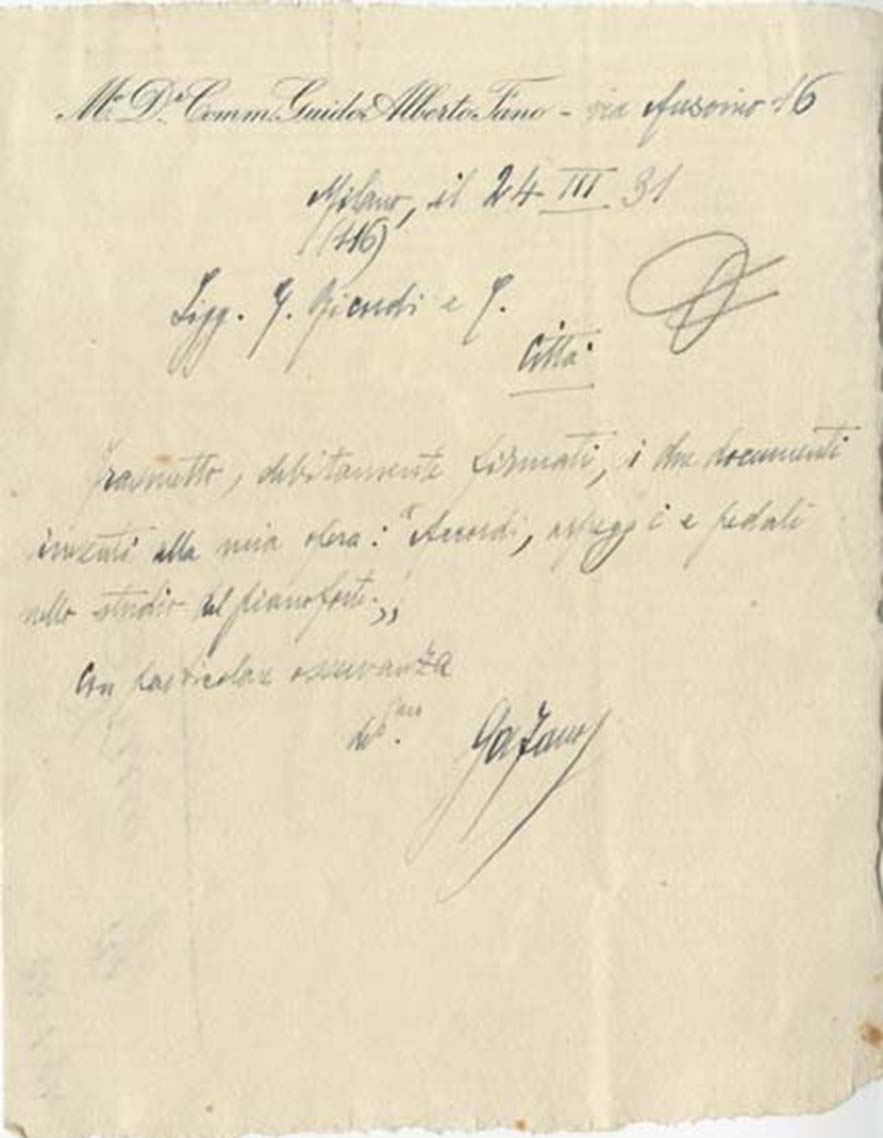 Mº Dr Comm. Guido Alberto Fano - via Ausonio 16
Milano, il 24 III 31
(116)
Sigg. G. Ricordi e C.
Città
Trasmetto, debitamente firmati, i due documenti
inerenti alla mia opera: "Accordi, arpeggi e pedali
nello studio del pianoforte.„
Con particolare osservanza
GAFano